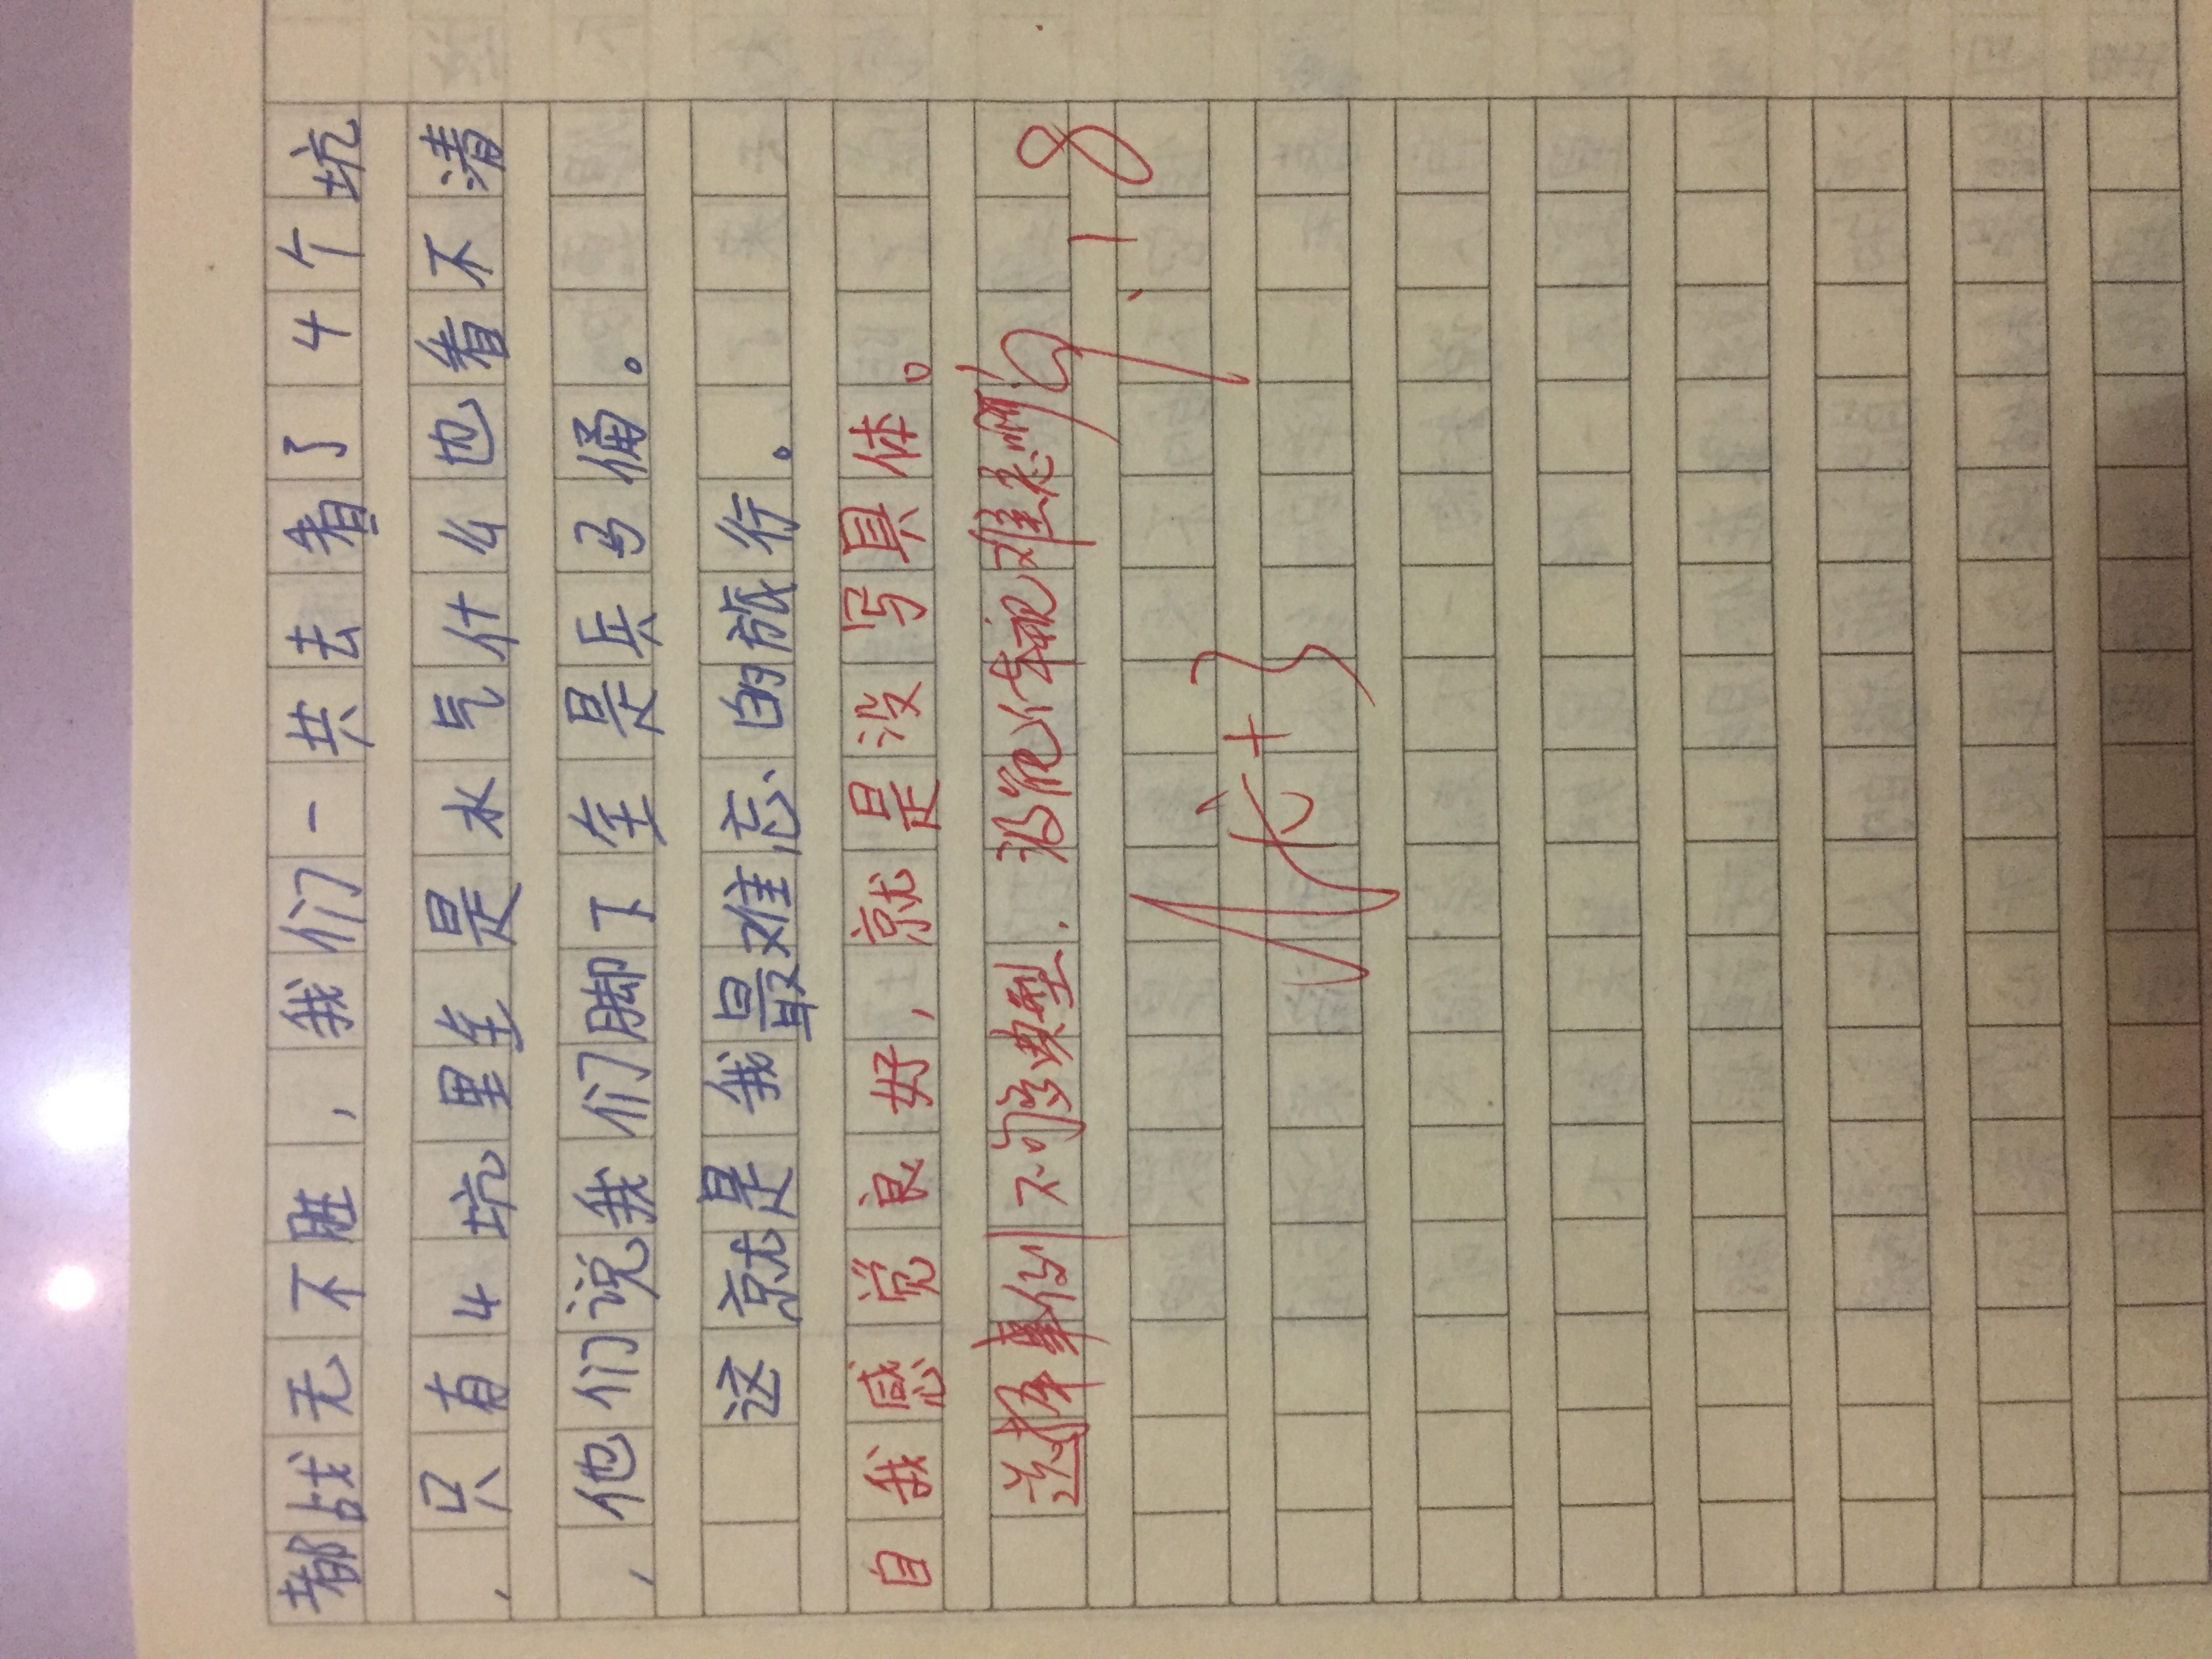 都战无不胜，我们一共去看了4个坑
，只有4坑里全是水气什么也看不清
，他们说我们脚下全是兵马俑。
这就是我最难忘的旅行。
自我感觉良好，就是没写具体。
选择事例不够典型.没能体现难忘啊！
9.18
优+3